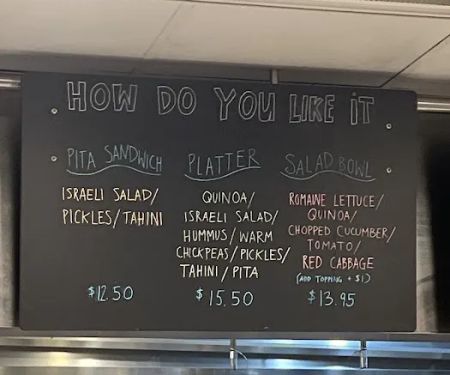 HOW DO YOU LIKE iT
PITA SANDWICH
ISRAELI SALAD/
PICKLES/TAHINI
$12.50
PLATTER
QUINOA/
ISRAELI SALAD/
HUMMUS/WARM
CHICKPEAS/PICKLES/
TAHINI/PITA
$15.50
SALAD BOWL
ROMAINE LETTUCE/
QUINOA/
CHOPPED CUCUMBER/
TOMATO/
RED CABBAGE
(ADD TOPPING + $1)
$13.95